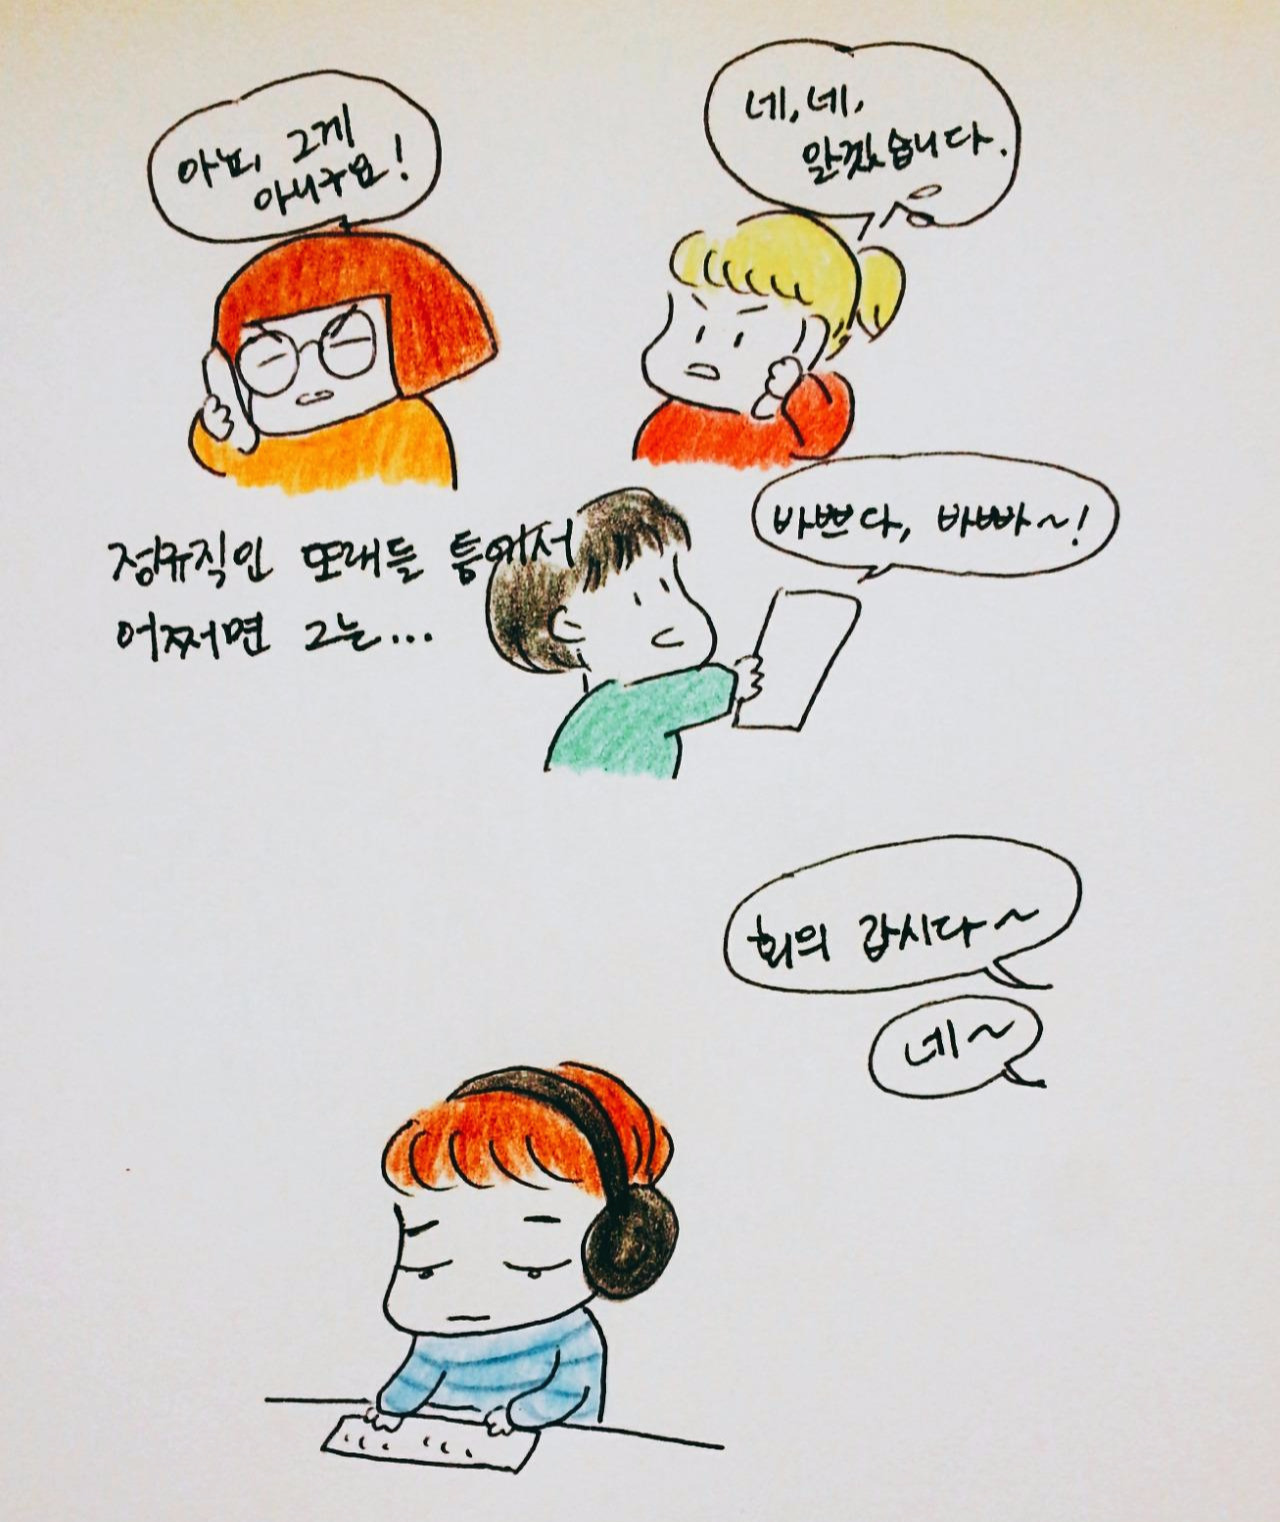 아뇨, 그게
아니구요!
네, 네,
알겠습니다.
바쁘다, 바빠~!
정규직인 또래들 틈에서
어쩌면 그는...
회의 갑시다~
네~